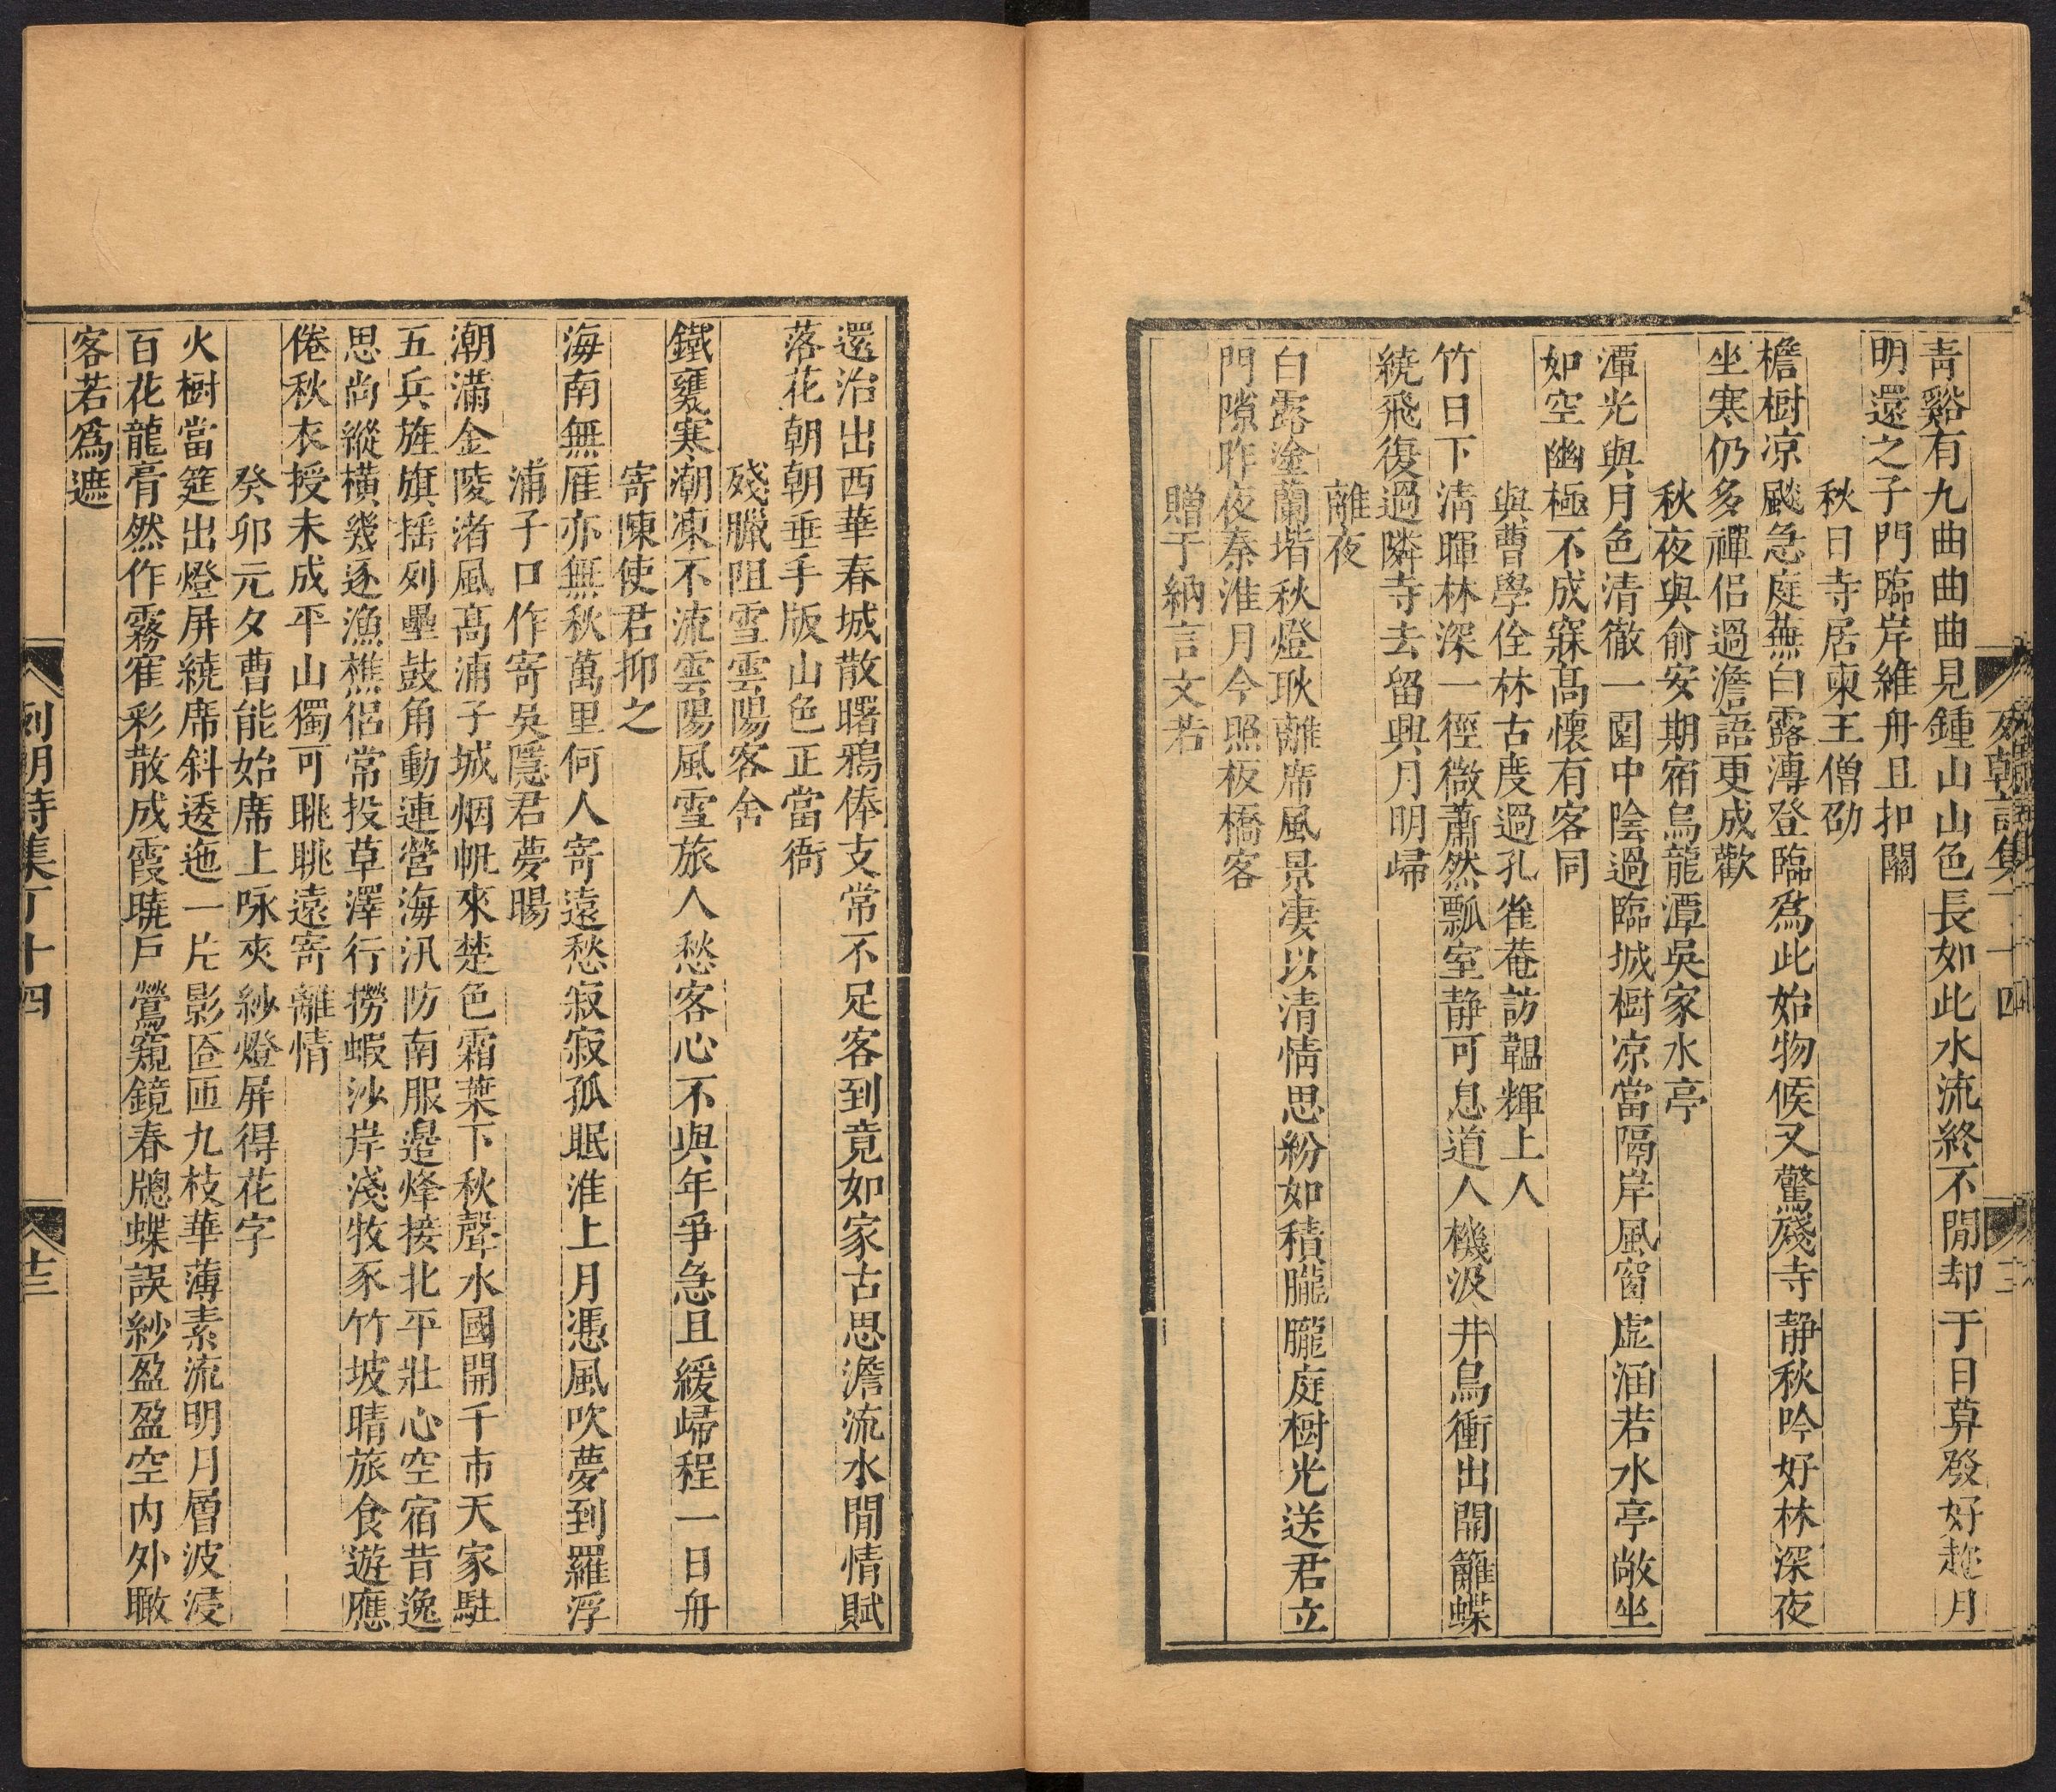 列朝詩集丁十四
青谿有九曲曲曲見鍾山山色長如此水流終不閒却于日算發好趂月
明還之子門臨岸維舟且扣關
秋日寺居柬王僧劭
檐樹凉飈急庭蕪白露漙登臨爲此始物候又驚殘寺静秋吟好林深夜
坐寒仍多禪侣過澹語更成歡
秋夜與俞安期宿烏龍潭吳家水亭
潭光與月色清徹一圍中陰過臨城樹凉當隔岸風窗虛涵若水亭敞坐
如空幽極不成寐髙懷有客同
與曹學佺林古度過孔雀菴訪韞輝上人
竹日下淸暉林深一徑微蕭然瓢室静可息道人機汲井烏衝出開籬蝶
繞飛復過隣寺去留興月明歸
離夜
白露塗蘭堦秋燈耿離席風景凄以清情思紛如積朧朧庭樹光送君立
門隙昨夜秦淮月今照板橋客
贈于納言文若
還治出西華春城散曙鴉俸支常不足客到竟如家古思澹流水閒情賦
落花朝朝垂手版山色正當衙
殘臘阻雪雲陽客舍
鐵甕寒潮凍不流雲陽風雪旅人愁客心不與年爭急且緩歸程一日舟
寄陳使君抑之
海南無雁亦無秋萬里何人寄遠愁寂寂孤眠淮上月憑風吹夢到羅浮
浦子口作寄吳隱君夢暘
潮滿金陵渚風髙浦子城烟帆來楚色霜葉下秋聲水國開千市天家駐
五兵旌旗揺列壘鼓角動連營海汛防南服邉烽接北平壯心空宿昔逸
思尚縱橫幾逐漁樵侣常投草澤行撈蝦沙岸淺牧豕竹坡晴旅食遊應
倦秋衣授未成平山獨可眺眺遠寄離情
癸卯元夕曹能始席上咏夾紗燈屏得花字
火樹當筵出燈屏繞席斜逶迤一片影匼匝九枝華薄素流明月層波浸
百花龍膏然作霧雀彩散成霞曉戶鶯窺鏡春牕蝶誤紗盈盈空内外瞰
客若爲遮
列朝詩集丁十四
十三